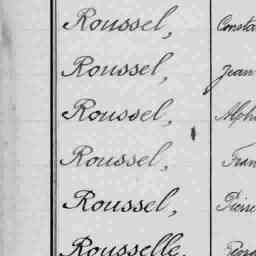 Roussel, Consta
Roussel, Jean
Roussel, Alph
Roussel, Fran
Roussel, Pierre
Rousselle,